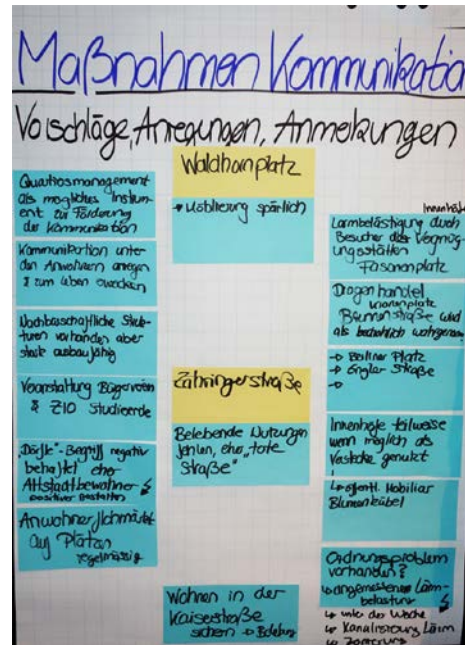 Maßnahmen Kommunikation
Vorschläge, Anregungen, Anmerkungen
Quartiersmanagement
als mögliches Instrum-
ent zur Förderung
der Kommunikation
Kommunikation unter
den Anwohnern anregen
& zum Leben erwecken
Nachbarschaftliche Struk-
turen vorhanden aber
stark ausbaufähig
Veranstaltung Bürgerverein
& Z10 Studierende
"Dörfle"-Begriff negativ
behaftet eher
Altstadtbewohner
positiver gestalten
Anwohnerflohmärkte
auf Plätzen
regelmässig
Waldhornplatz
Möblierung spärlich
Zähringerstraße
Belebende Nutzungen
fehlen, eher "tote
Straße"
Wohnen in der
Kaiserstraße
sichern → Belebung
Innenhöfe
Lärmbelästigung durch
Besucher der Vergnüg-
ungsstätten
Fasanenplatz
Drogenhandel
Brunnenstraße wird
als bedrohlich wahrgenomm
→ Berliner Platz
→ Engler Straße
→
Innenhöfe teilweise
wenn möglich als
Verstecke genutzt
↳ öffentl. Mobiliar
Blumenkübel
Ordnungsproblem
vorhanden?
↳ angemessene Lärm-
belastung
↳ unter der Woche
↳ Kanalisierung Lärm
↳ Zonierung